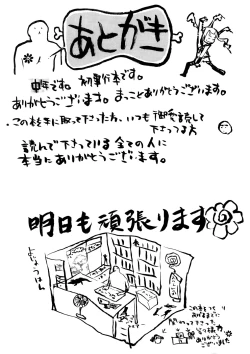 あとがき
です。初単行本です。
ありがとうございます。まっことありがとうございます。
・この本を手に取って下さった方、いつも御愛読して
下さってる方
読んで下さっている全ての人に
本当にありがとうございます。
明日も頑張ります
ありがとう
ございました